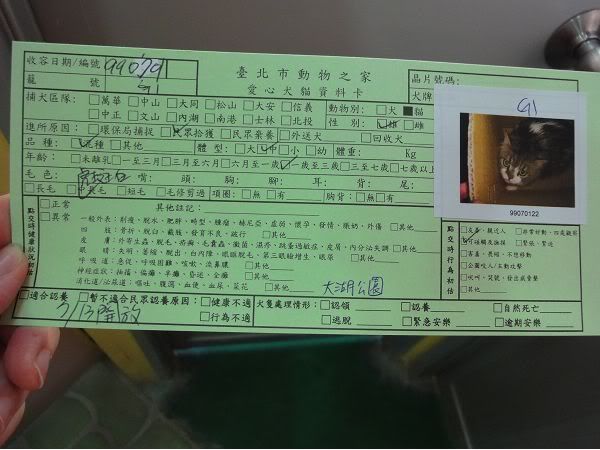 收容日期/編號 990701
臺北市動物之家
晶片號碼:
籠 號 G1
愛心犬貓資料卡
犬牌
捕犬區隊: □萬華 □中山 □大同 □松山 □大安 □信義 動物別: □犬 ■貓
□中正 □文山 □內湖 □南港 □士林 □北投 性 別: □雄 □雌
進所原因: □環保局捕捉 □民眾拾獲 □民眾棄養 □外送犬 □回收犬
品 種: □混種 □其他 體 型: □大 □中 □小 □幼 體重: Kg
年齡: □未離乳 □一至三月 □三月至六月 □六月至一歲 □一歲至三歲 □三至七歲 □七歲以上
毛 色: 嘴: 頭: 胸: 腳: 耳: 背: 尾:
□長毛 □中長毛 □短毛 □毛修剪過 項圈: □無 □有 胸背: □無 □有
G1
99070122
點交時健康狀況初評
□正常
□異常
其他註記:
一般外表: 削瘦、脫水、肥胖、畸型、腫瘤、赫尼亞、虛弱、懷孕、發情、燙奶、外傷 □其他
四 肢: 骨折、脫臼、截肢、發育不良、跛行 □其他
皮 膚: 外寄生蟲、脫毛、疥癬、毛囊蟲、黴菌、濕疹、跳蚤過敏症、皮屑、內分泌失調 □其他
眼 睛: 失明、萎縮、脫出、白內障、眼瞼脫毛、第三眼瞼增生、眼屎 □其他
呼 吸 道: 急促、呼吸困難、咳嗽、流鼻膿 □其他
神經症狀: 抽搐、偏癱、半癱、昏迷、全癱 □其他
消化道/泌尿道: 嘔吐、腹瀉、血便、血尿、菜花 □其他
大湖公園
點交時行為初估
□友善、親近人 □非常好動、四處觀察
□可碰觸及撫摸 □緊張、緊迫
□害羞、畏縮、不想移動
□公開咬人/主動攻擊
□吹呵、哭號、發出威脅聲
□其他
□適合認養 □暫不適合民眾認養原因: □健康不過 犬隻處理情形: □認領 □認養 □自然死亡
□行為不過 □逃脫 □緊急安樂 □逾期安樂
7/13開放